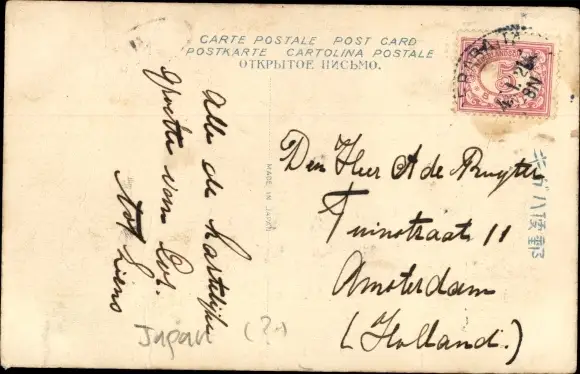 CARTE POSTALE POST CARD
POSTKARTE CARTOLINA POSTALE
ОТКРЫТОЕ ПИСЬМО.
MADE IN JAPAN
Alle de hartelijke
groeten van Cor.
Tot Ziens
Den Heer A de Ruyter
Tuinstraat 11
Amsterdam
(Holland.)
Japan (?)
キガハ便郵